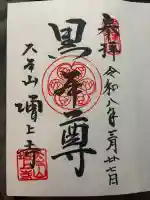 奉拝
令和八年三月廿七日
黒本尊
大本山
増上寺